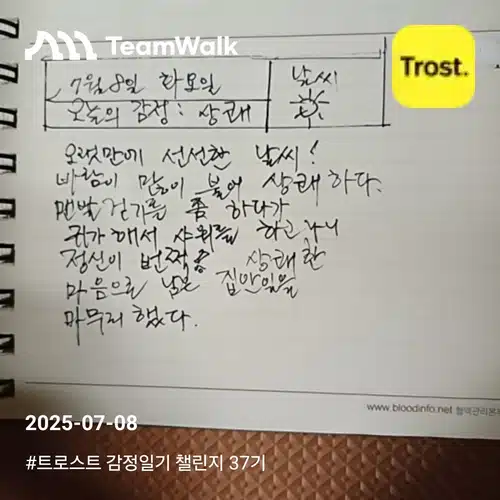 TeamWalk
Trost.
7월 8일 화요일
날씨
오늘의 감정 : 상쾌
오랫만에 선선한 날씨!
바람이 많이 불어 상쾌하다.
맨발걷기를 좀 하다가
귀가해서 샤워를 하고나니
정신이 번쩍 상쾌한
마음으로 남은 집안일을
마무리했다.
www.bloodinfo.net 혈액관리본부
2025-07-08
#트로스트 감정일기 챌린지 37기